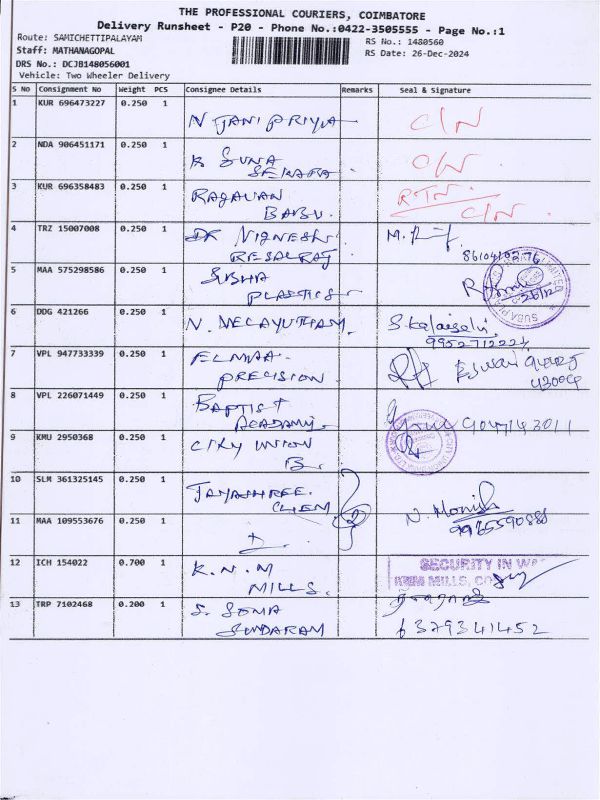 THE PROFESSIONAL COURIERS, COIMBATORE
Delivery Runsheet - P20 - Phone No.:0422-3505555 - Page No.:1
Route: SAMICHETTIPALAYAM
RS No.: 1480560
Staff: MATHANAGOPAL
RS Date: 26-Dec-2024
DRS No.: DCJB148056001
Vehicle: Two Wheeler Delivery
S No Consignment No Weight PCS Consignee Details Remarks Seal & Signature
1 KUR 696473227 0.250 1
N JANI PRIYA C/N
2 NDA 906451171 0.250 1
SUNA C/N
SEKARA
3 KUR 696358483 0.250 1
RAGAVAN RTN.
BABU. C/N
4 TRZ 15007008 0.250 1
DR VIGNESH M.
8610410376
5 MAA 575298586 0.250 1
SUBHA
PLASTICS
26/12
6 DDG 421266 0.250 1
N. VELAYUTHAM S.Kalaiselvi
7 VPL 947733339 0.250 1
ELMAA
PRECISION
8 VPL 226071449 0.250 1
BAPTIST
ACADAMY
9 KMU 2950368 0.250 1
CITY UNION
B.
10 SLM 361325145 0.250 1
JAYASHREE.
CHEM N. Monish
11 MAA 109553676 0.250 1
12 ICH 154022 0.700 1
K.N.M SECURITY IN
MILLS. MILLS,
13 TRP 7102468 0.200 1
S. SOMA
SUNDARAM 6379341452